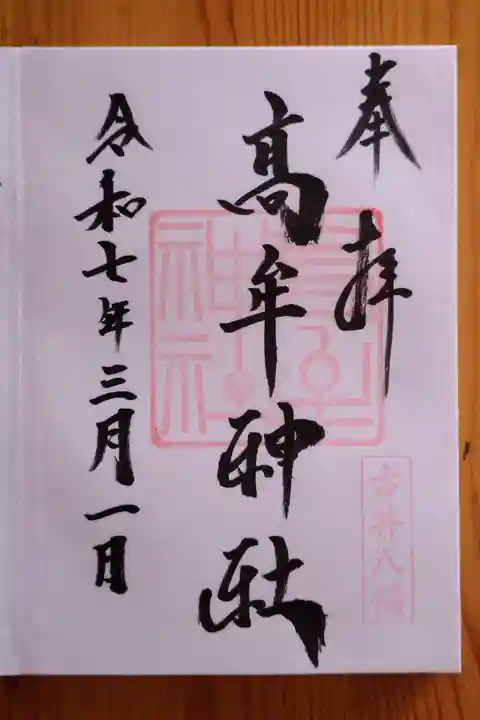 奉拝
高牟神社
古井八幡
令和七年三月一日